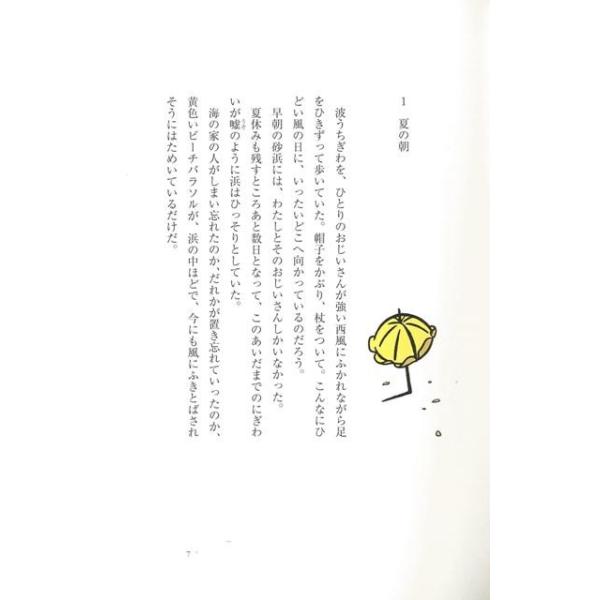 1 夏の朝
波うちぎわを、ひとりのおじいさんが強い西風にふかれながら足
をひきずって歩いていた。帽子をかぶり、杖をついて。こんなにひ
どい風の日に、いったいどこへ向かっているのだろう。
早朝の砂浜には、わたしとそのおじいさんしかいなかった。
夏休みも残すところあと数日となって、このあいだまでのにぎわ
いが嘘のように浜はひっそりとしていた。
海の家の人がしまい忘れたのか、だれかが置き忘れていったのか、
黄色いビーチパラソルが、浜の中ほどで、今にも風にふきとばされ
そうにはためいているだけだ。
7